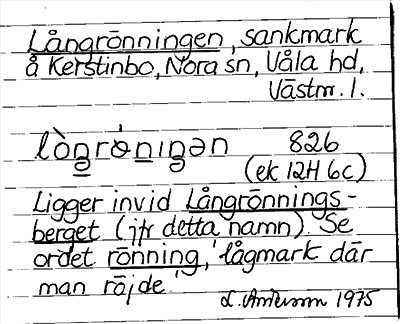 Långrönningen, sankmark
å Kerstinbo, Nora sn, Våla hd,
Västm. l.
lòngrǿ̀nıŋən 826
(ek 12H 6c)
Ligger invid Långrönnings-
berget (jfr detta namn). Se
ordet rönning, 'lågmark där
man röjde.'
L. Andersson 1975